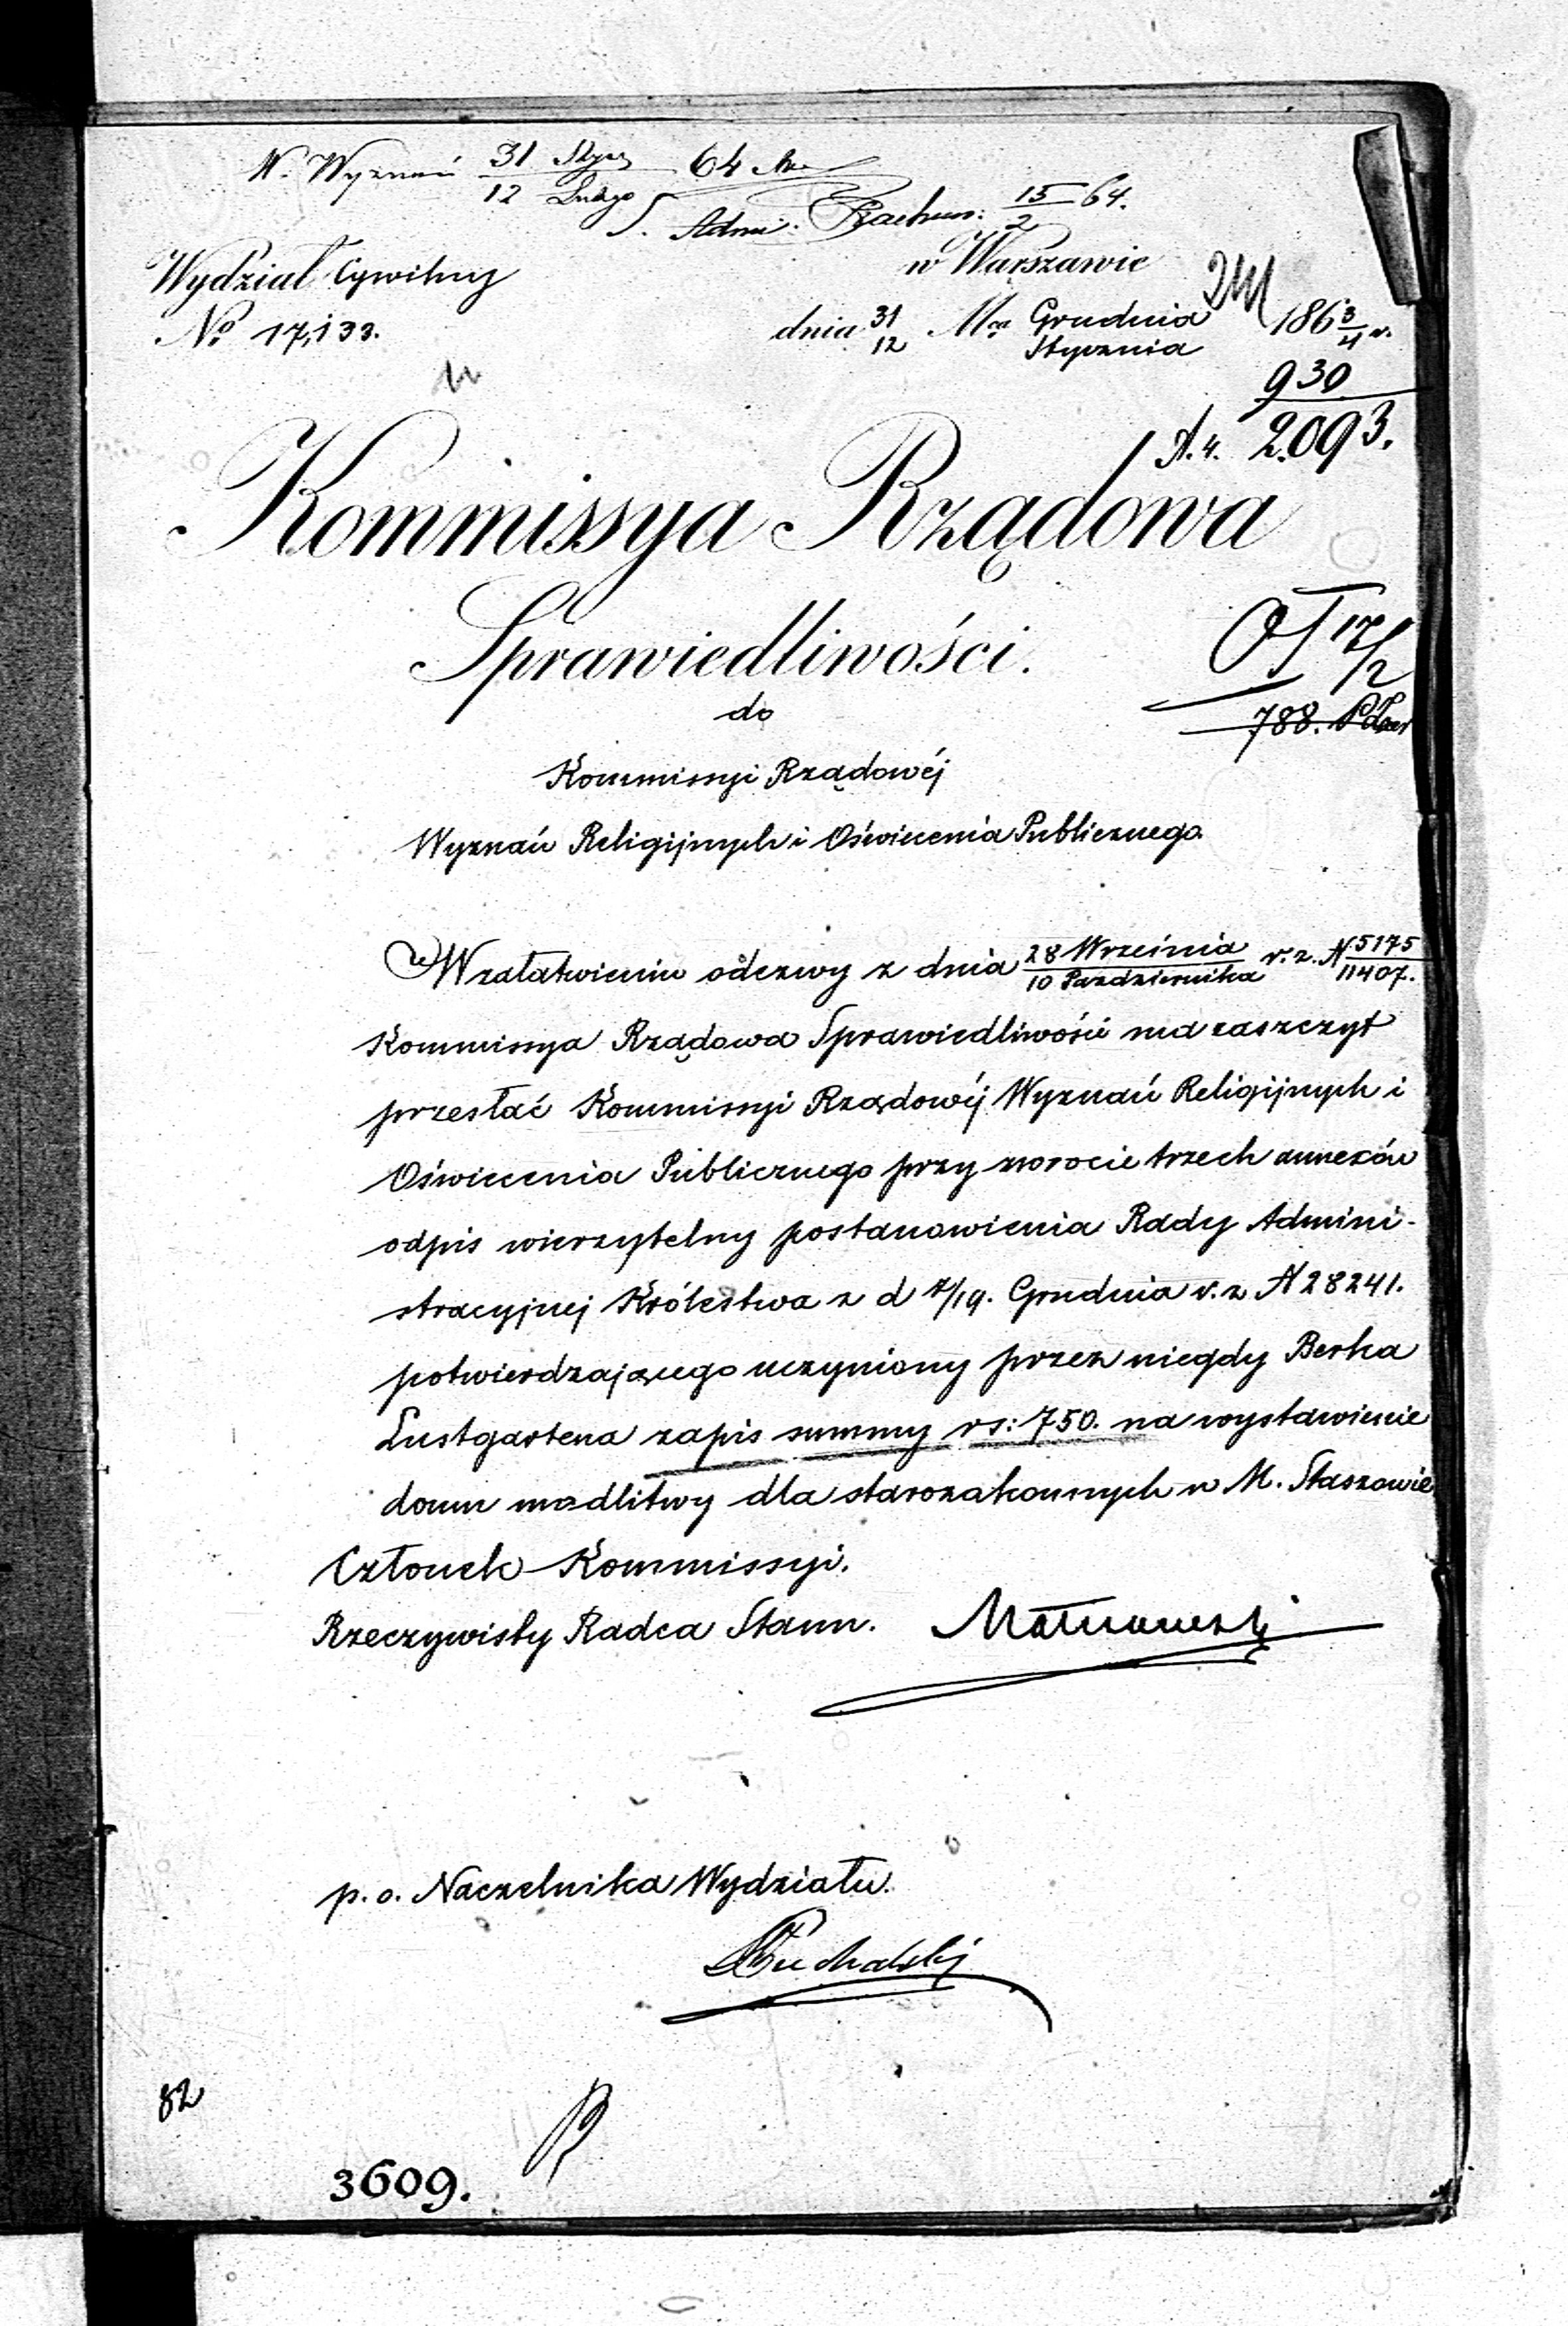 W. Wyznań 31 Stycz / 12 Lutego 64
S. Admi: Rachun: 15/2 64.
Wydział Cywilny
w Warszawie
№ 17,133.
dnia 31/12 Mca Grudnia/Stycznia 1863/4 r.
930
A.4. 2093.
Kommissya Rządowa
Sprawiedliwości.
17/2
do
788.
Kommissyi Rządowéj
Wyznań Religijnych i Oświecenia Publicznego
W załatwieniu odezwy z dnia 28 Września / 10 Października r. z. N 5175 / 11407.
Kommissya Rządowa Sprawiedliwości ma zaszczyt
przesłać Kommissyi Rządowéj Wyznań Religijnych i
Oświecenia Publicznego przy zwrocie trzech annexów
odpis wierzytelny postanowienia Rady Admini-
stracyjnej Królestwa z d 7/19. Grudnia r. z N 28241.
potwierdzającego uczyniony przez niegdy Berka
Lustgartena zapis summy rs: 750. na wystawienie
domu modlitwy dla starozakonnych w M. Staszowie
Członek Kommissyi.
Rzeczywisty Radca Stanu.
p. o. Naczelnika Wydziału.
Puchalski
82
3609.